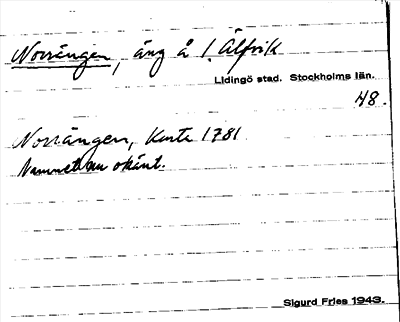 Norrängen, äng å 1. Älfvik
Lidingö stad. Stockholms län.
48.
Norrängen, Karta 1781
Namnet nu okänt.
Sigurd Fries 1943.